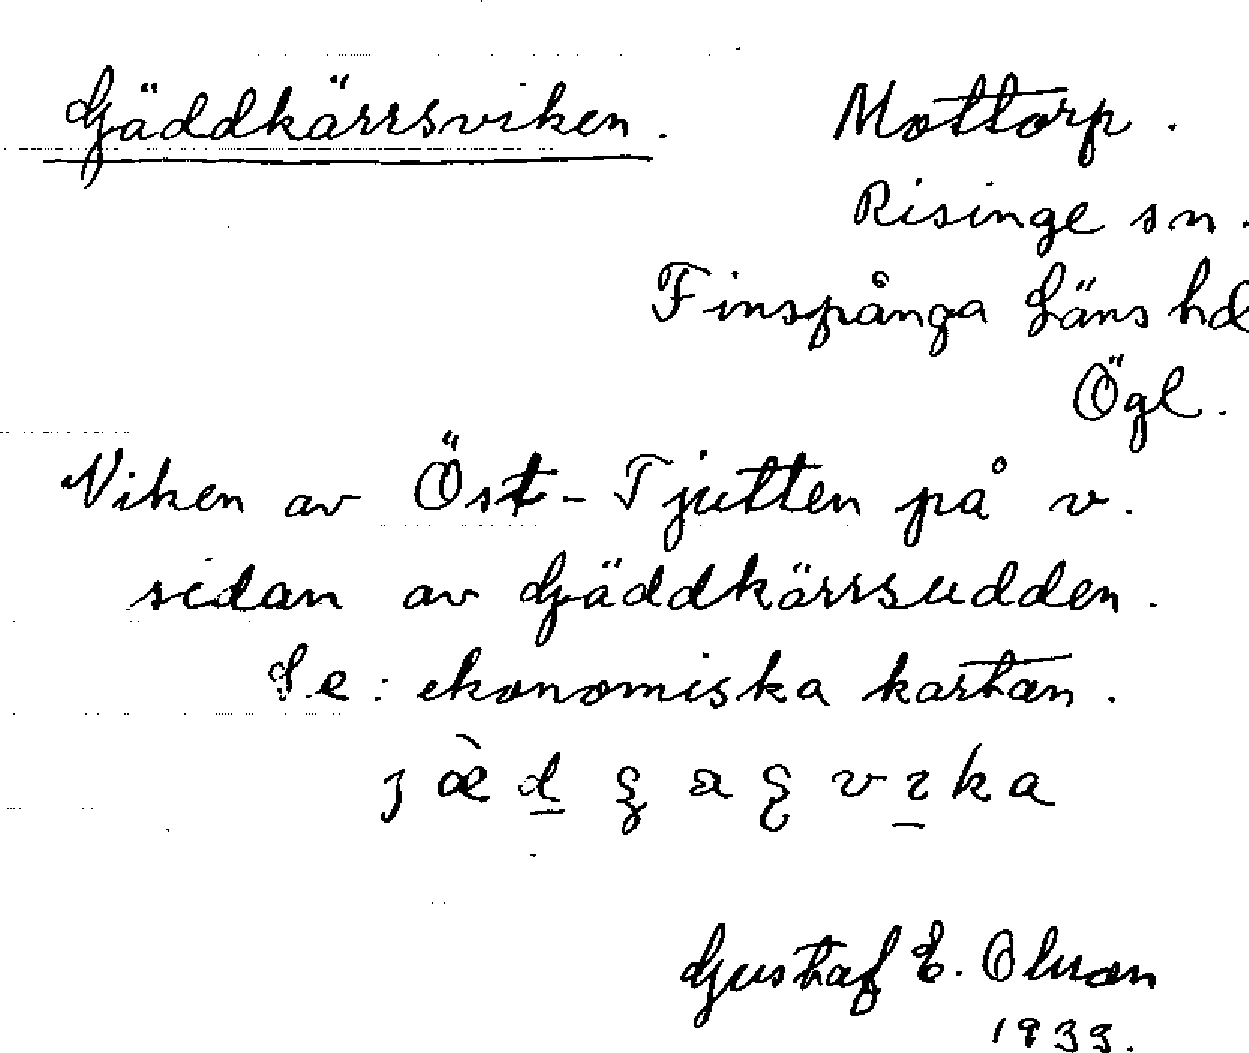 Gäddkärrsviken. Mottorp.
Risinge sn.
Finspånga Läns hd
Ögl.
Viken av Öst-Tjutten på v.
sidan av Gäddkärrsudden.
Se: ekonomiska kartan.
Gustaf E. Olson
1933.